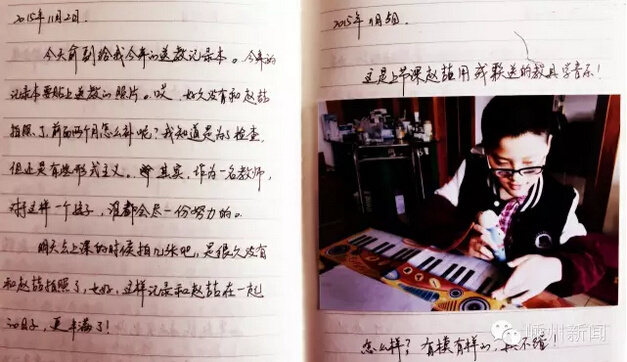 2015年11月2日
今天俞到给我今年的送教记录本。今年的
记录本要贴上送教的照片。哎，好久没有和赵喆
拍照了，前面两个月怎么补呢？我知道是为了检查，
但还是有些形式主义。其实，作为一名教师，
对于这样一个孩子，谁都会尽一份努力的。
明天去上课的时候拍几张吧，是很久没有
和赵喆拍照了，也好，这样记录和赵喆在一起
的日子，更丰满了！
2015年11月5日
这是上节课赵喆用我教送的教具学音乐！
怎么样？有模有样的，很不错！
嵊州新闻